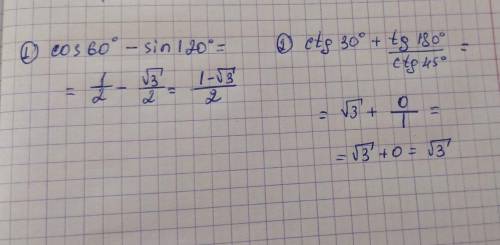 ① cos60° − sin120° =
= 1/2 − √3/2 = 1−√3/2
② ctg 30° + tg 180°/ctg 45° =
= √3 + 0/1 =
= √3 + 0 = √3